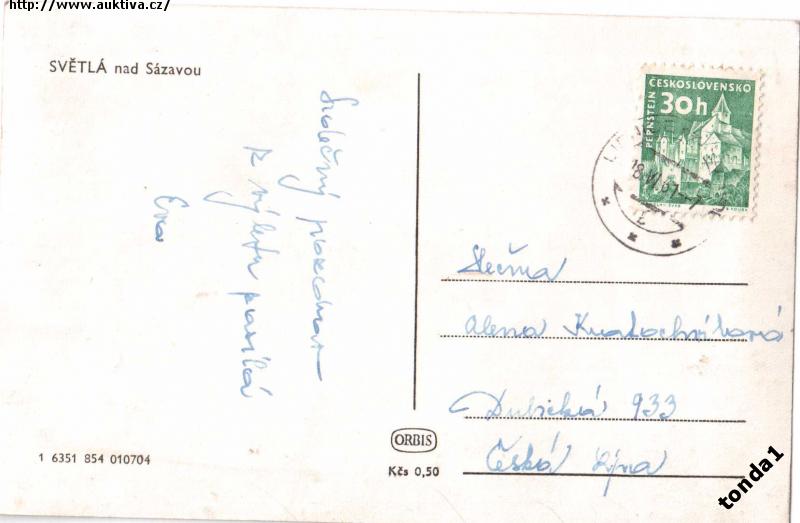 http://www.auktiva.cz/
SVĚTLÁ nad Sázavou
Srdečný pozdrav
z výletu posílá
Eva
ČESKOSLOVENSKO
30h
PERNŠTEJN
18.VI.61
Slečna
Alena Kratochvílová
Dubická 933
Česká Lípa
ORBIS
Kčs 0,50
1 6351 854 010704
tonda1